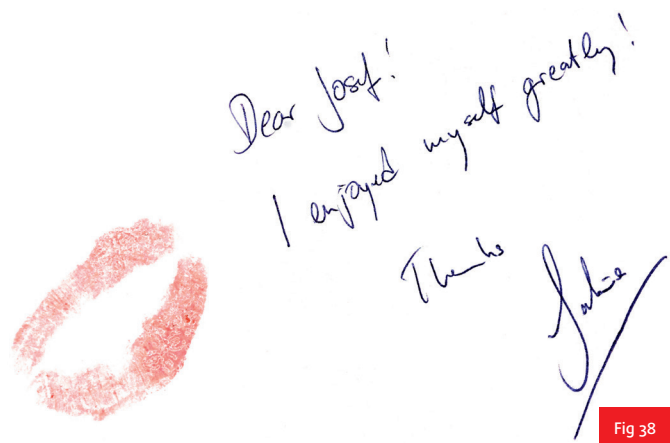 Dear Josef!
I enjoyed myself greatly!
Thanks
Sabine
Fig 38